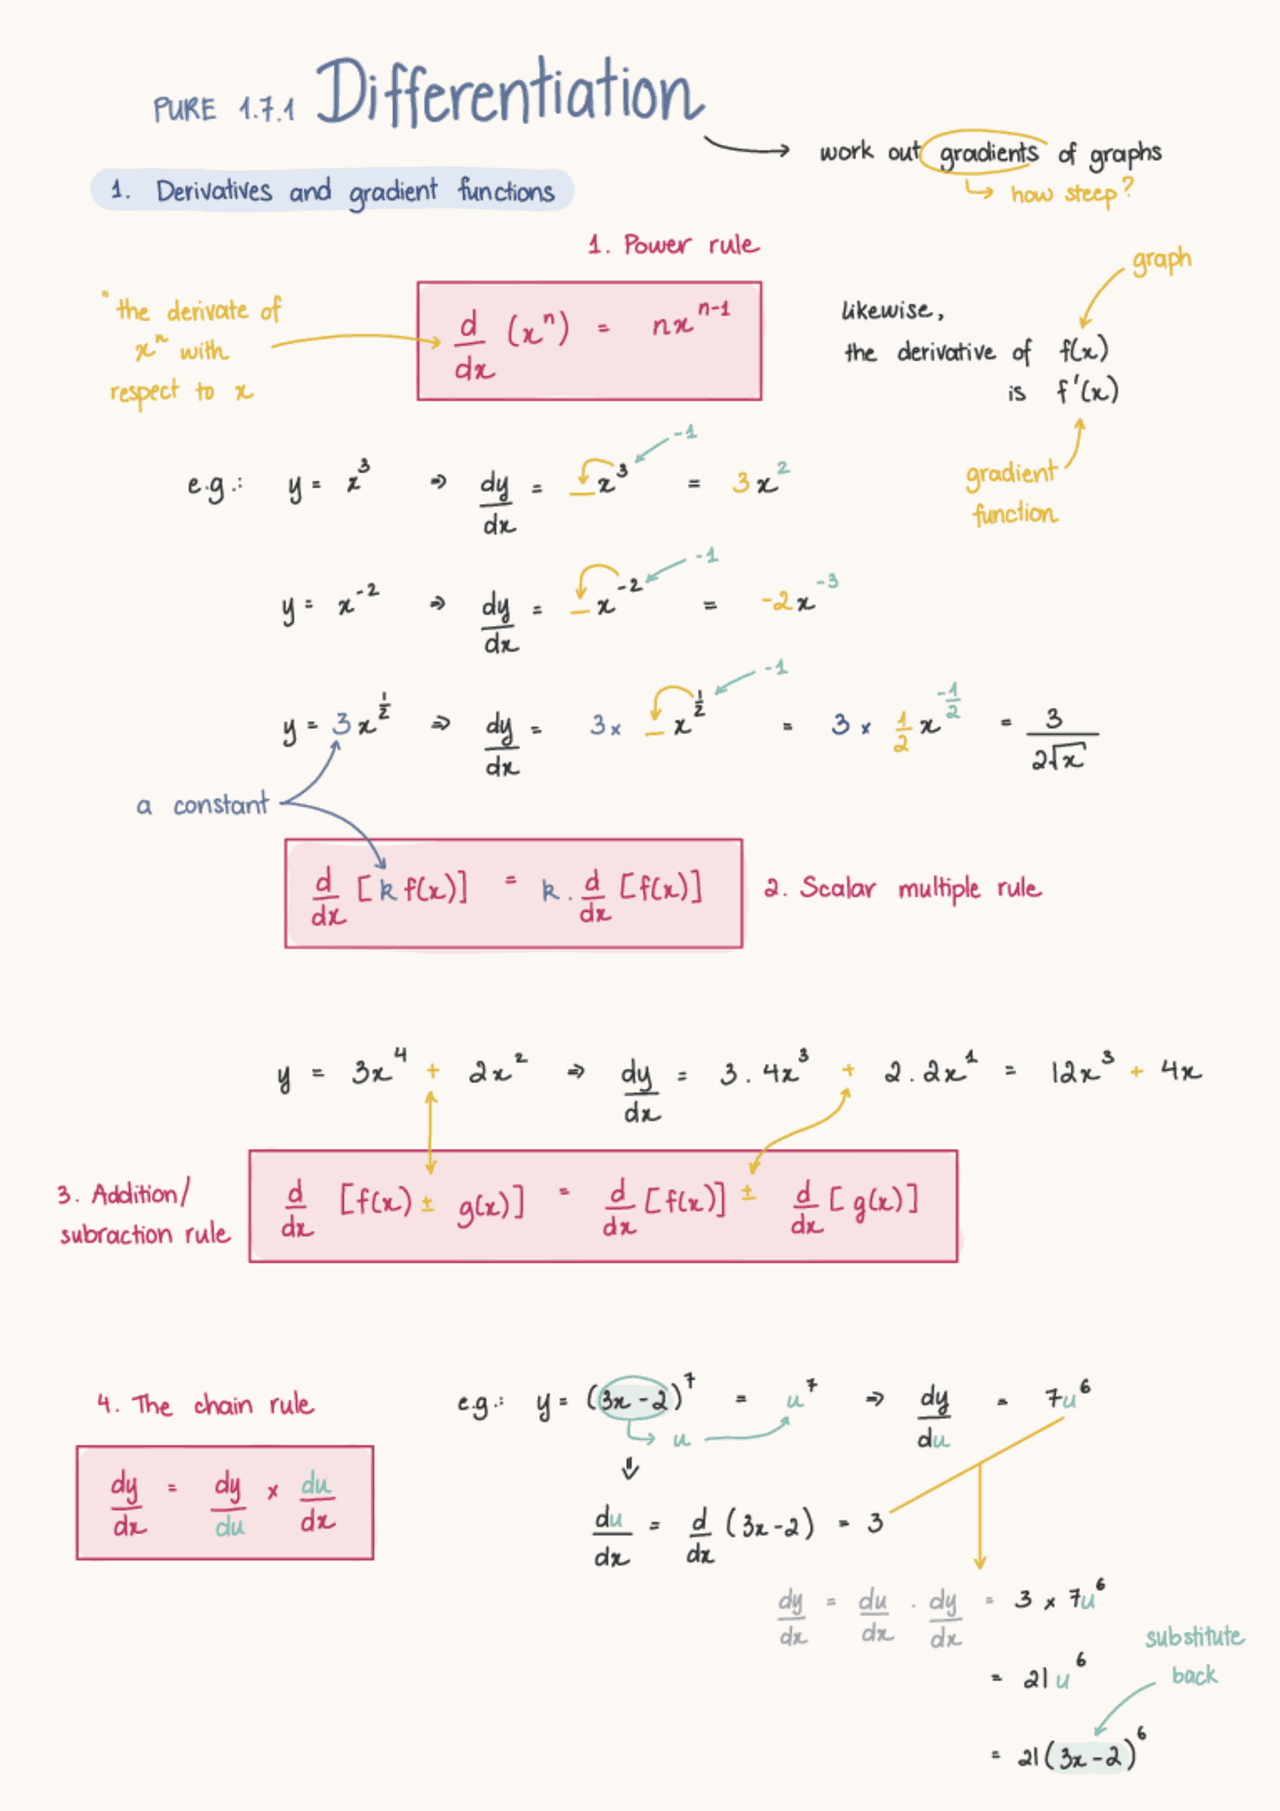 PURE 1.7.1 Differentiation
work out gradients of graphs
how steep?
1. Derivatives and gradient functions
1. Power rule
graph
"the derivate of
xⁿ with
respect to x
d/dx (xⁿ) = nxⁿ⁻¹
likewise,
the derivative of f(x)
is f'(x)
gradient
function
-1
e.g.: y = x³ ⇒ dy/dx = _x³ = 3x²
-1
y = x⁻² ⇒ dy/dx = _x⁻² = -2x⁻³
-1
y = 3x^(1/2) ⇒ dy/dx = 3 × _x^(1/2) = 3 × 1/2 x^(-1/2) = 3/(2√x)
a constant
d/dx [k f(x)] = k . d/dx [f(x)]
2. Scalar multiple rule
y = 3x⁴ + 2x² ⇒ dy/dx = 3 . 4x³ + 2 . 2x¹ = 12x³ + 4x
3. Addition/
subraction rule
d/dx [f(x) ± g(x)] = d/dx [f(x)] ± d/dx [g(x)]
4. The chain rule
dy/dx = dy/du × du/dx
e.g.: y = (3x-2)⁷ = u⁷ ⇒ dy/du = 7u⁶
u
du/dx = d/dx (3x-2) = 3
dy/dx = du/dx . dy/dx = 3 × 7u⁶
= 21u⁶
substitute
back
= 21(3x-2)⁶